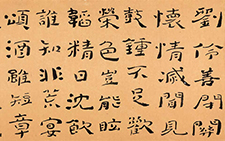 劉伶善閉關
懷情滅聞見
鼓鍾不足歡
榮色豈能眩
韜精日沈飲
誰知非荒宴
頌酒雖短章